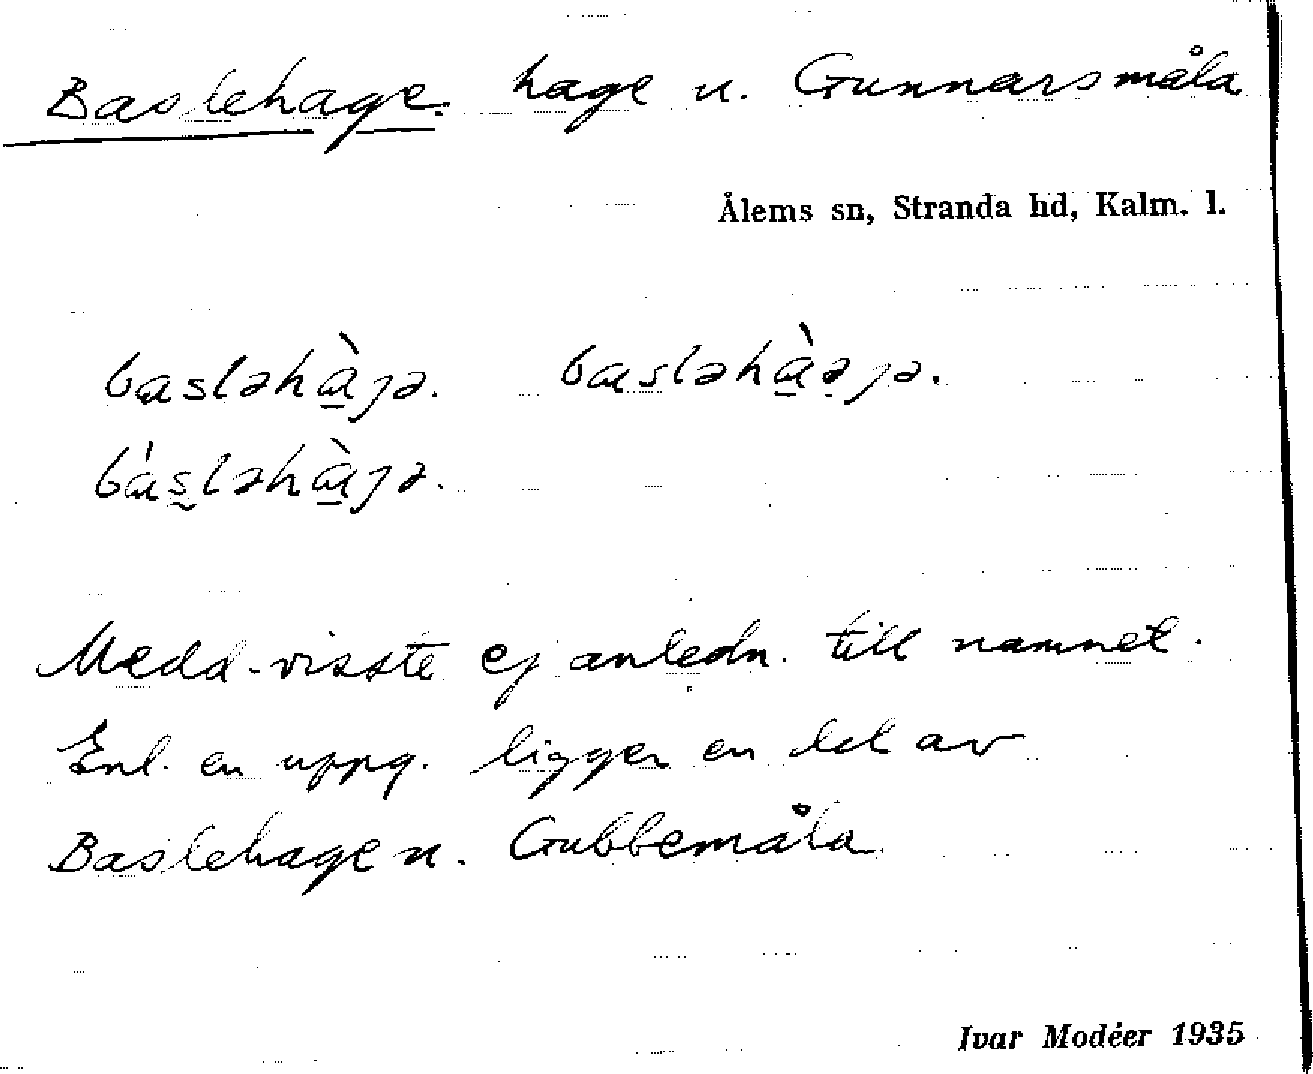 Baslehage. hage u. Gunnarsmåla
Ålems sn, Stranda hd, Kalm. l.
basləhàɡə. basləhàəɡə.
básləhàɡə.
Medd. visste ej anledn. till namnet.
Enl. en uppg. ligger en del av
Baslehage u. Gubbemåla
Ivar Modéer 1935